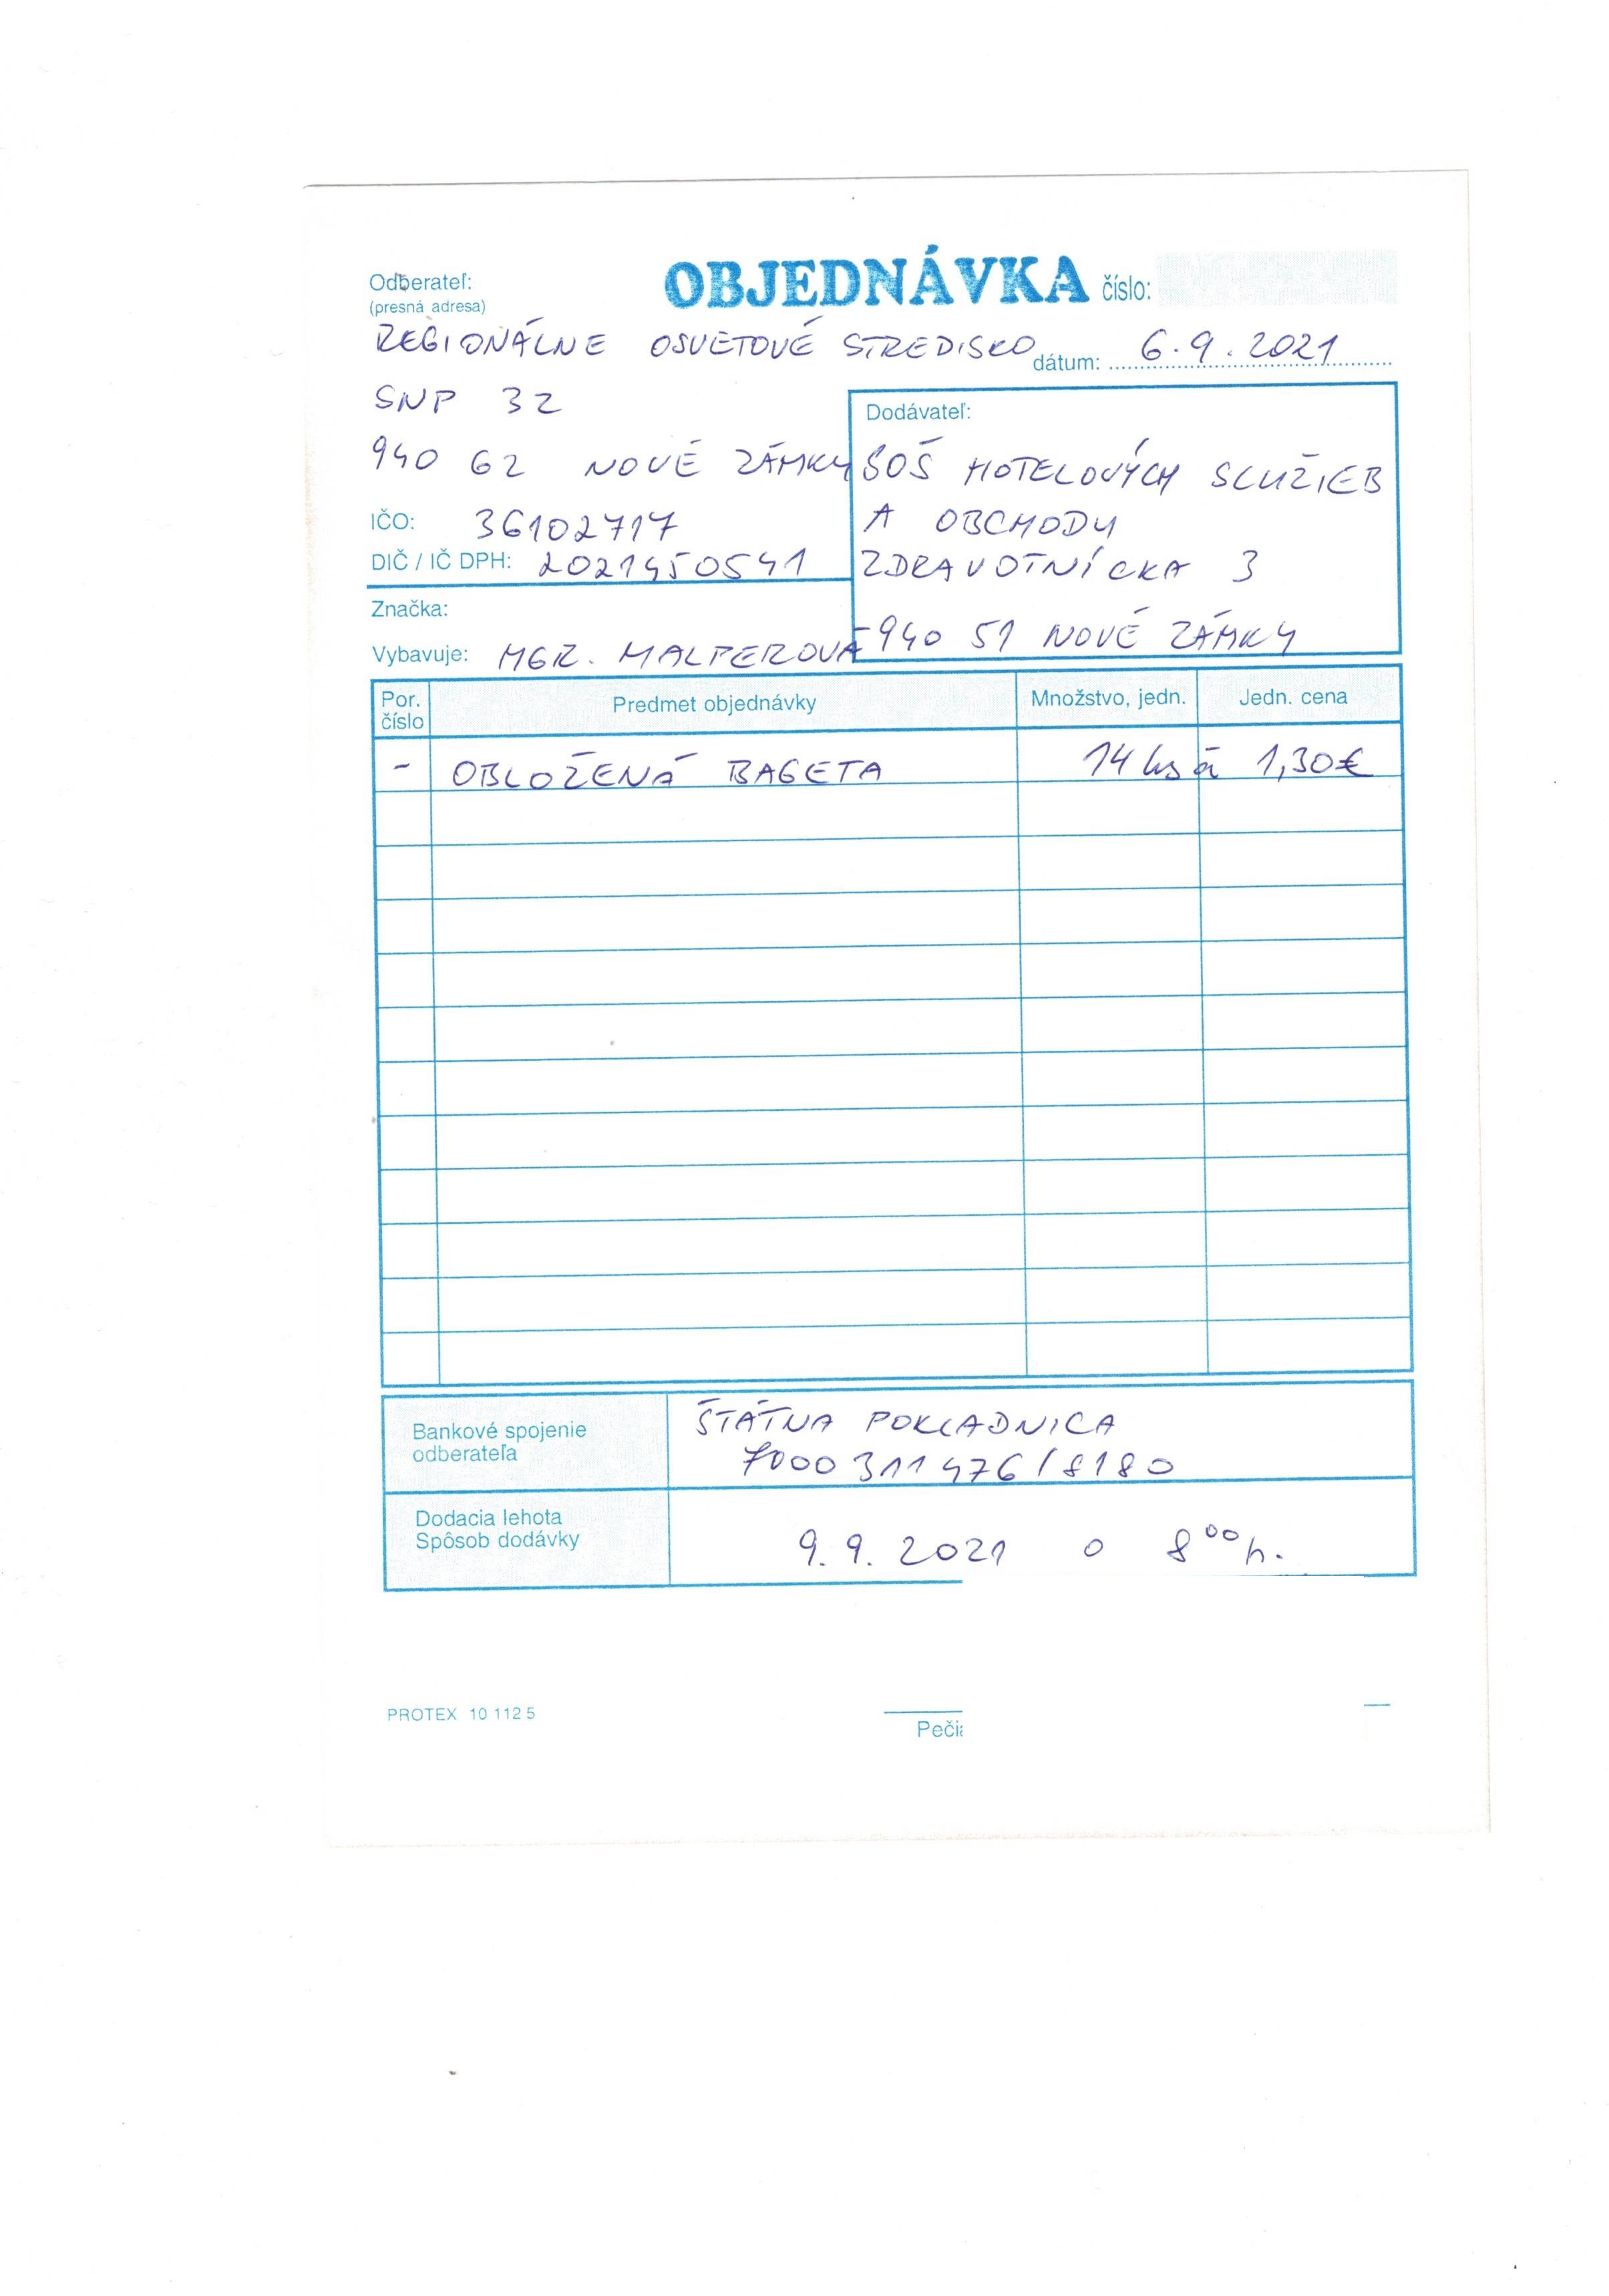 Odberateľ:
(presná adresa)
OBJEDNÁVKA číslo:
REGIONÁLNE OSVETOVÉ STREDISKO
dátum: 6.9.2021
SNP 32
940 62 NOVÉ ZÁMKY
IČO: 36102717
DIČ / IČ DPH: 2021450541
Značka:
Vybavuje: MGR. MALPEROVÁ
Dodávateľ:
SOŠ HOTELOVÝCH SLUŽIEB
A OBCHODU
ZDRAVOTNÍCKA 3
940 51 NOVÉ ZÁMKY
Por. číslo Predmet objednávky Množstvo, jedn. Jedn. cena
- OBLOŽENÁ BAGETA 14 ks á 1,30€
Bankové spojenie
odberateľa
ŠTÁTNA POKLADNICA
7000311476/8180
Dodacia lehota
Spôsob dodávky
9.9.2021 o 8⁰⁰h.
PROTEX 10 112 5
Peči